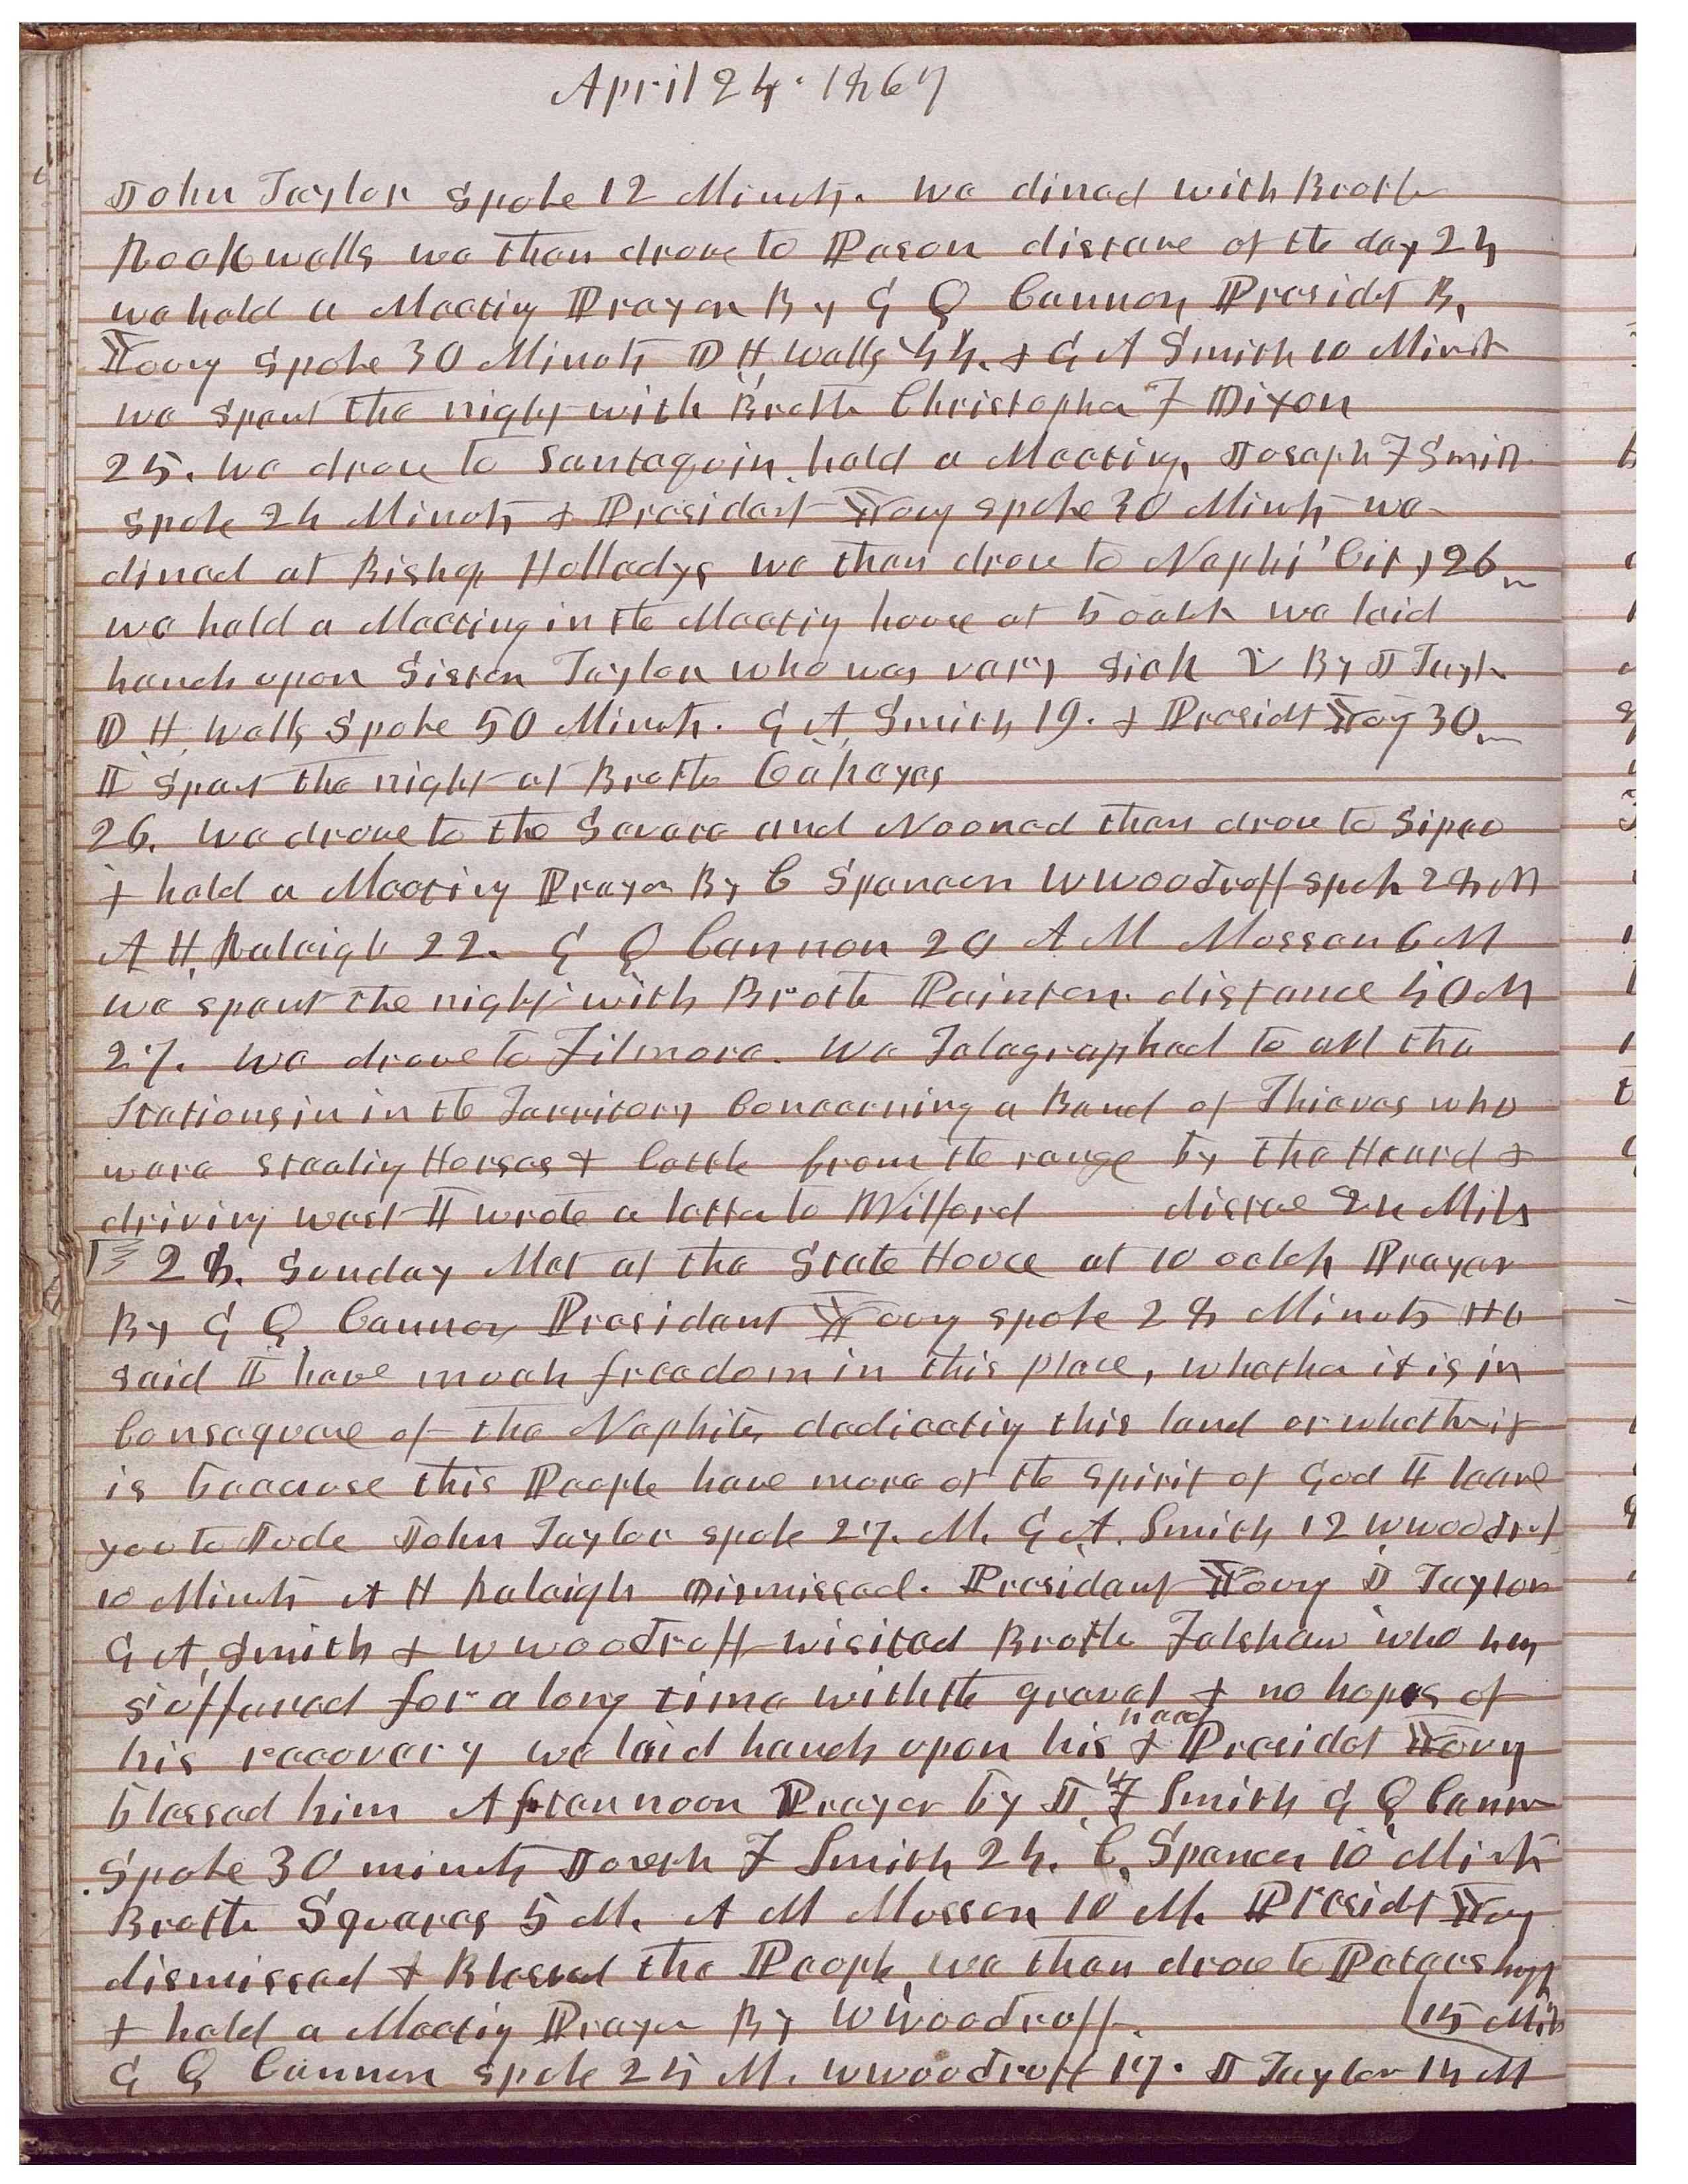 April 24. 1867
John Taylor spoke 12 Minuts. we dined with Brother
Rockwells we then drove to Pason distance of the day 24
we held a Meeting Prayer By G Q Cannon, Presidt B,
Young spoke 30 Minuts D H, Wells 44. & G A Smith 10 Minut
we spent the night with Brother Christopher F Dixon
25. We drove to Santaquin held a Meeting, Joseph F Smith
spoke 24 Minuts & President Young spoke 30 Minuts we
dined at Bishop Holladys we then drove to Nephi City 26
we held a Meeting in the Meeting house at 5 oclk we laid
hands upon Sister Taylor who was very sick By J Taylor
D H, Wells Spoke 50 Minuts. G A, Smith 19. & Presidt Young 30
I Spent the night at Brother
26. We drove to the Severe and Nooned then drove to Sipeo
& held a Meeting Prayer By C Spencer W Woodruff spok 28 M
A H, Raleigh 22. G Q Cannon 20 A M Mussen 6 M
we spent the night with Brother Painter. distance 40 M
27. We drove to Filmore. We Telegraphed to all the
Stations in in the Territory Concerning a Band of Thieves who
were stealing Horses & Cattle from the range by the Heard &
driving west I wrote a letter to Wilford distance 24 Miles
28. Sunday Met at the State House at 10 oclok Prayer
By G Q Cannon President Young spoke 28 Minuts He
said I have much freedom in this place, whether it is in
Consequence of the Nephites dedicating this land or whether it
is because this People have more of the spirit of God I leave
you to Jude John Taylor spoke 27. M. G A. Smith 12 W Woodruf
10 Minuts A H Raleigh Dismissed. President Young J Taylor
G A, Smith & W Woodruff visited Brother Felshaw who has
suffered for a long time with the gravel & no hopes of
his recovery we laid hands upon his head & Presidet Young
blessed him Afternoon Prayer by J, F Smith G Q Cannon
Spoke 30 minuts Joseph F Smith 24. C, Spencer 10 Minuts
Brother Squares 5 M. A M Mussen 10 M. Presidt Young
dismissed & Blessed the People, we then drove to Petersburgh
& held a Meeting Prayer By W Woodruff. 15 Mils
G Q Cannon spoke 25 M. W Woodruff 17. J Taylor 14 M